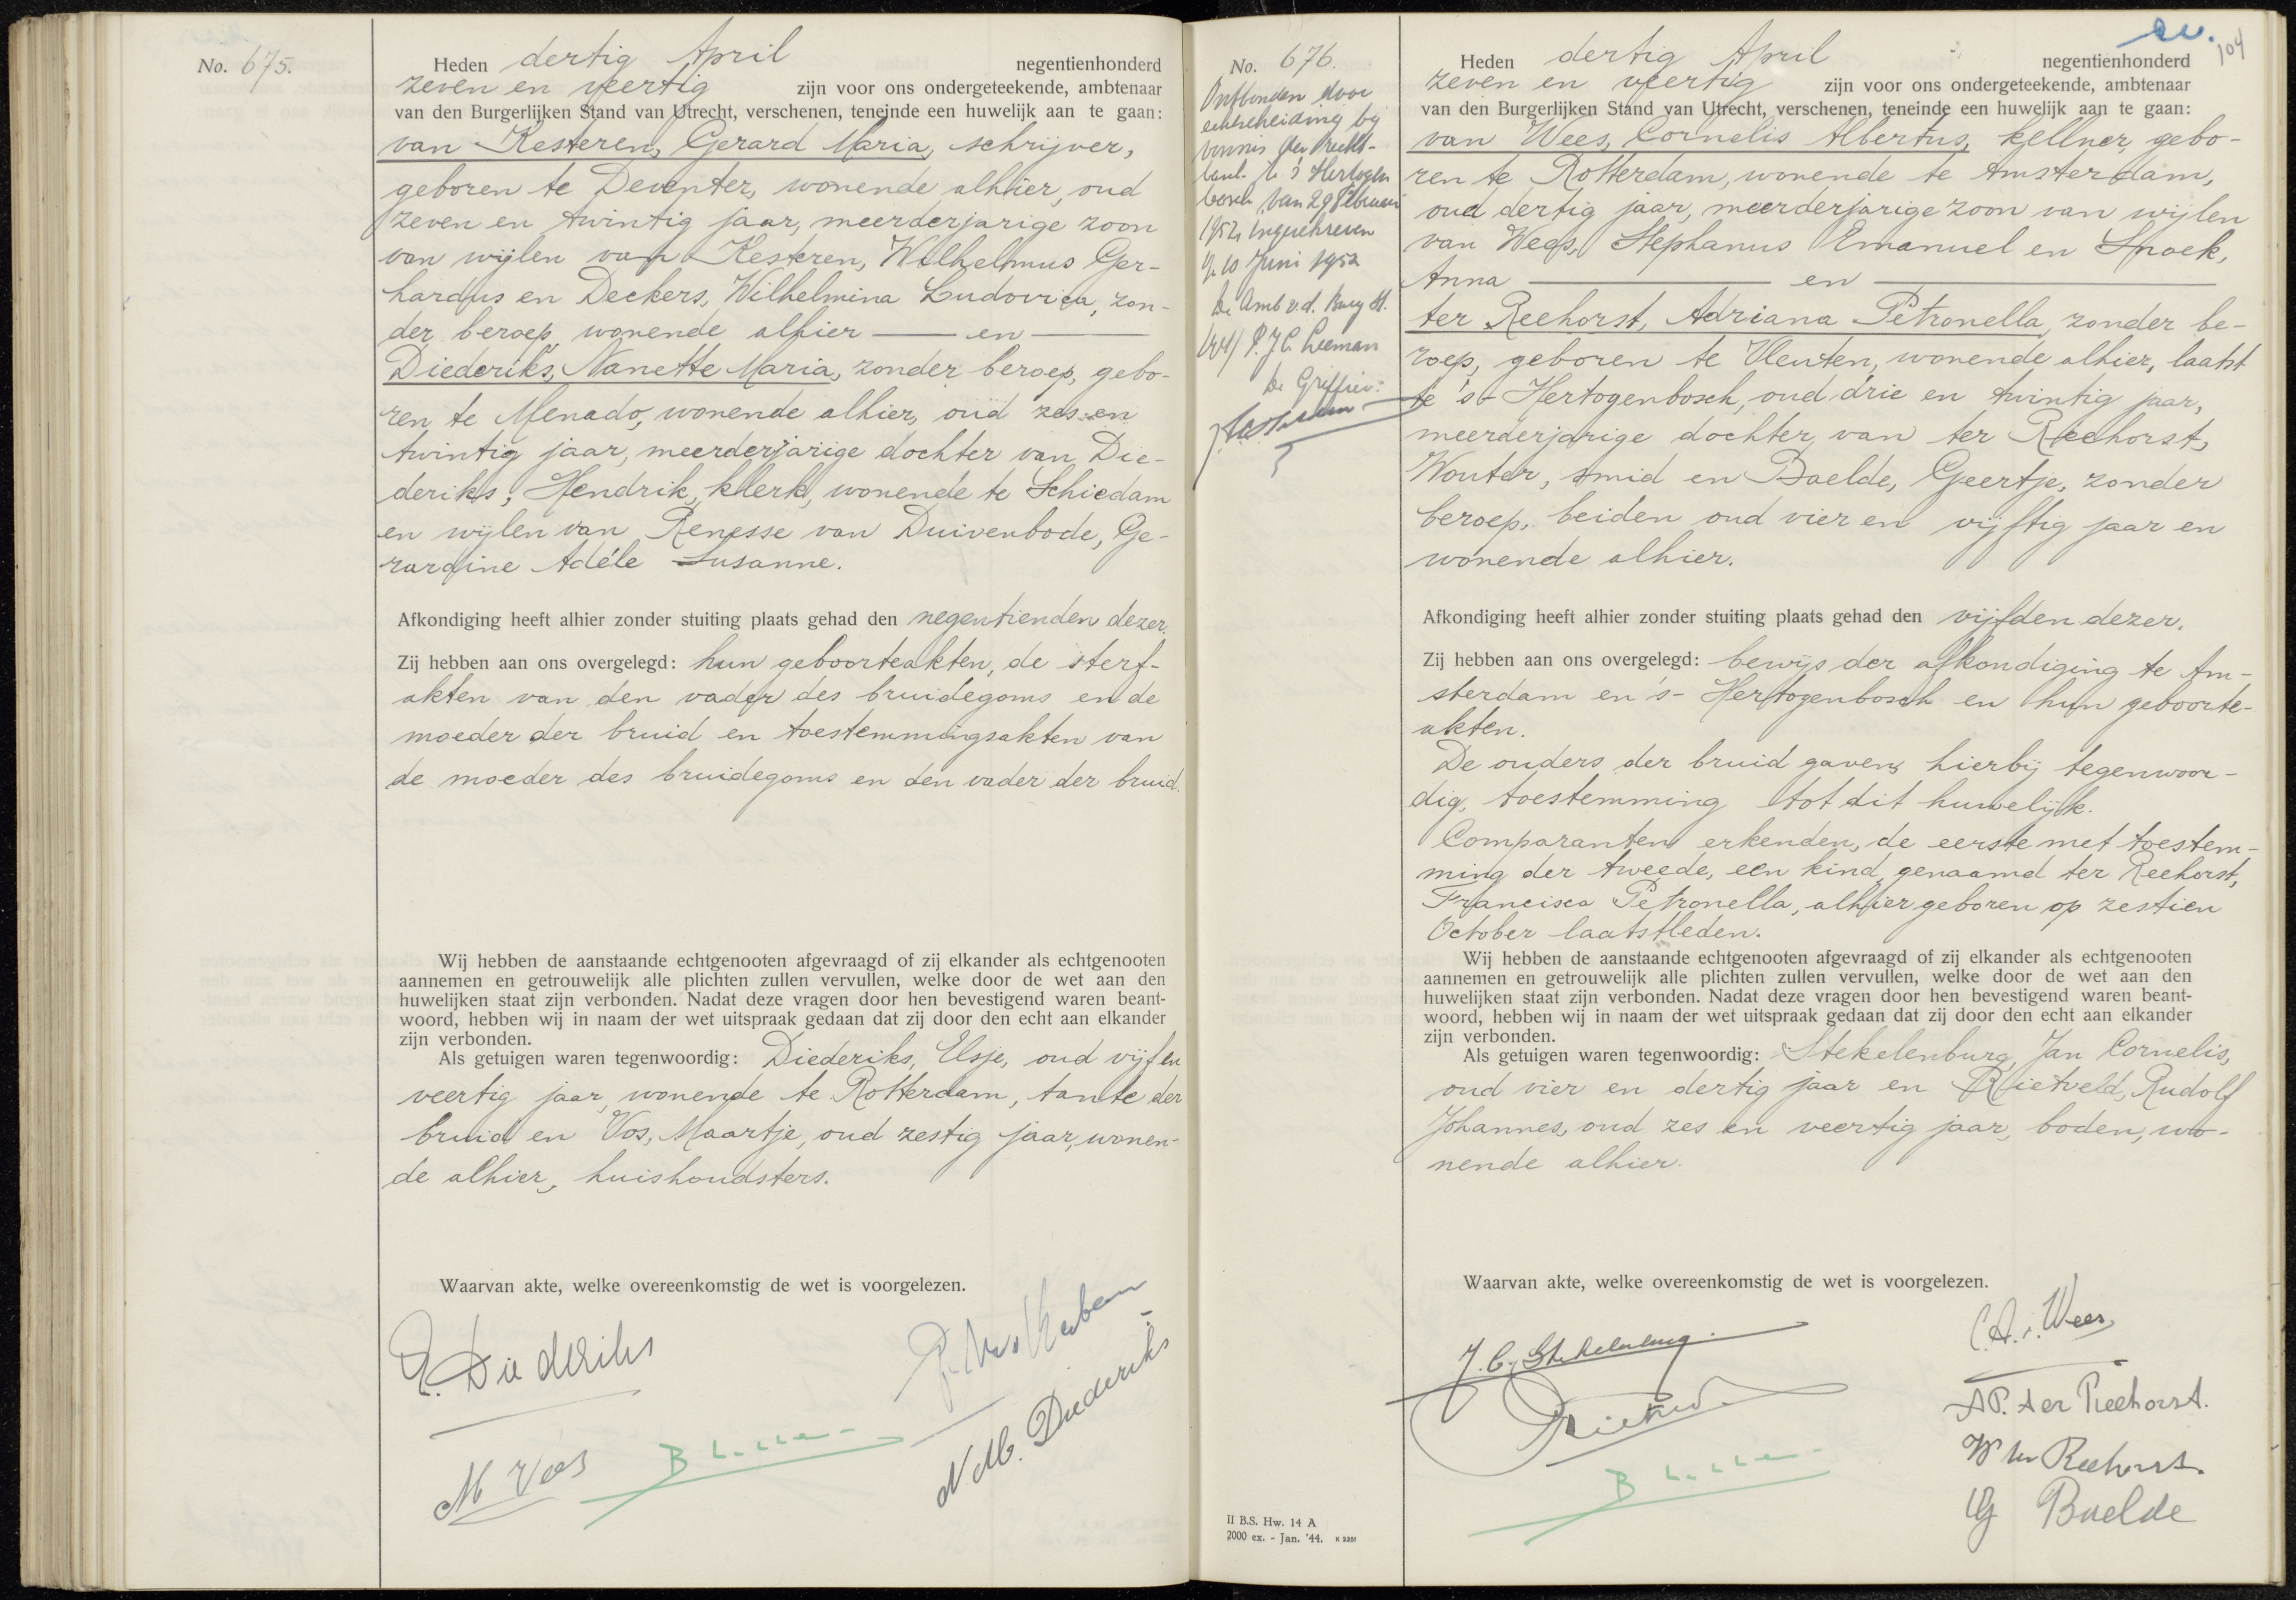 No. 675.
Heden dertig April negentienhonderd
zeven en veertig zijn voor ons ondergeteekende, ambtenaar
van den Burgerlijken Stand van Utrecht, verschenen, teneinde een huwelijk aan te gaan:
van Kesteren, Gerard Maria, schrijver,
geboren te Deventer, wonende alhier, oud
zeven en twintig jaar, meerderjarige zoon
van wijlen van Kesteren, Wilhelmus Ger-
hardus en Deckers, Wilhelmina Ludovica, zon-
der beroep, wonende alhier — en —
Diederiks, Nanette Maria, zonder beroep, gebo-
ren te Menado, wonende alhier, oud zes en
twintig jaar, meerderjarige dochter van Die-
deriks, Hendrik, klerk, wonende te Schiedam
en wijlen van Renesse van Duivenbode, Ge-
rardine Adéle Susanne.
Afkondiging heeft alhier zonder stuiting plaats gehad den negentienden dezer.
Zij hebben aan ons overgelegd: hun geboorteakten, de sterf-
akten van den vader des bruidegoms en de
moeder der bruid en toestemmingsakten van
de moeder des bruidegoms en den vader der bruid.
Wij hebben de aanstaande echtgenooten afgevraagd of zij elkander als echtgenooten
aannemen en getrouwelijk alle plichten zullen vervullen, welke door de wet aan den
huwelijken staat zijn verbonden. Nadat deze vragen door hen bevestigend waren beant-
woord, hebben wij in naam der wet uitspraak gedaan dat zij door den echt aan elkander
zijn verbonden.
Als getuigen waren tegenwoordig: Diederiks, Elsje, oud vijf en
veertig jaar, wonende te Rotterdam, tante der
bruid en Vos, Maartje, oud zestig jaar, wonen-
de alhier, huishoudsters.
Waarvan akte, welke overeenkomstig de wet is voorgelezen.
E. Diederiks
N.M. Diederiks
M Vos
No. 676.
Ontbonden door
echtscheiding bij
vonnis der Recht-
bank te 's Hertogen
bosch van 29 Februari
1952, ingeschreven
10 Juni 1952
De Amb v.d. Burg St.
P. J C. Leeman
De Griffier:
104
Heden dertig April negentienhonderd
zeven en veertig zijn voor ons ondergeteekende, ambtenaar
van den Burgerlijken Stand van Utrecht, verschenen, teneinde een huwelijk aan te gaan:
van Wees, Cornelis Albertus, kellner, gebo-
ren te Rotterdam, wonende te Amsterdam,
oud dertig jaar, meerderjarige zoon van wijlen
van Wees, Stephanus Emanuel en Snoek,
Anna — en —
ter Reehorst, Adriana Petronella, zonder be-
roep, geboren te Vleuten, wonende alhier, laatst
te 's-Hertogenbosch, oud drie en twintig jaar,
meerderjarige dochter van ter Reehorst,
Wouter, smid en Baelde, Geertje, zonder
beroep, beiden oud vier en vijftig jaar en
wonende alhier.
Afkondiging heeft alhier zonder stuiting plaats gehad den vijfden dezer.
Zij hebben aan ons overgelegd: bewijs der afkondiging te Am-
sterdam en 's-Hertogenbosch en hun geboorte-
akten.
De ouders der bruid gaven, hierbij tegenwoor-
dig, toestemming tot dit huwelijk.
Comparanten erkenden, de eerste met toestem-
ming der tweede, een kind, genaamd ter Reehorst,
Francisca Petronella, alhier geboren op zestien
October laatstleden.
Wij hebben de aanstaande echtgenooten afgevraagd of zij elkander als echtgenooten
aannemen en getrouwelijk alle plichten zullen vervullen, welke door de wet aan den
huwelijken staat zijn verbonden. Nadat deze vragen door hen bevestigend waren beant-
woord, hebben wij in naam der wet uitspraak gedaan dat zij door den echt aan elkander
zijn verbonden.
Als getuigen waren tegenwoordig: Stekelenburg, Jan Cornelis,
oud vier en dertig jaar en Rietveld, Rudolf
Johannes, oud zes en veertig jaar, boden, wo-
nende alhier.
Waarvan akte, welke overeenkomstig de wet is voorgelezen.
C.A. v. Wees
J. C. Stekelenburg.
A P. ter Reehorst.
W ter Reehorst.
G Baelde
II B.S. Hw. 14 A
2000 ex. - Jan. '44. K 2251